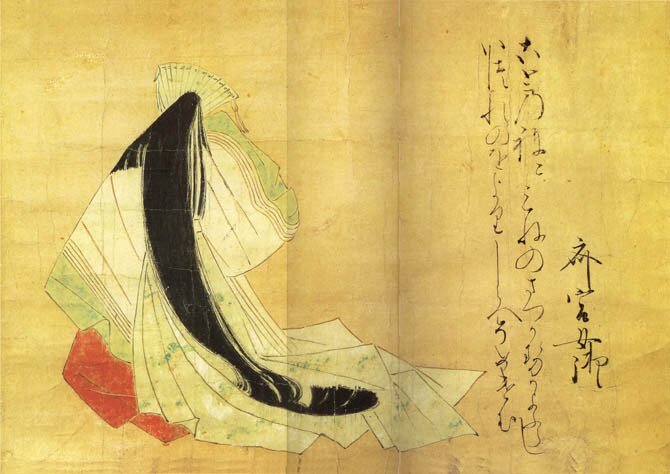 斎宮女御
ことのねにみねのまつかせかよふらし
いつれのをよりしらへそめけむ